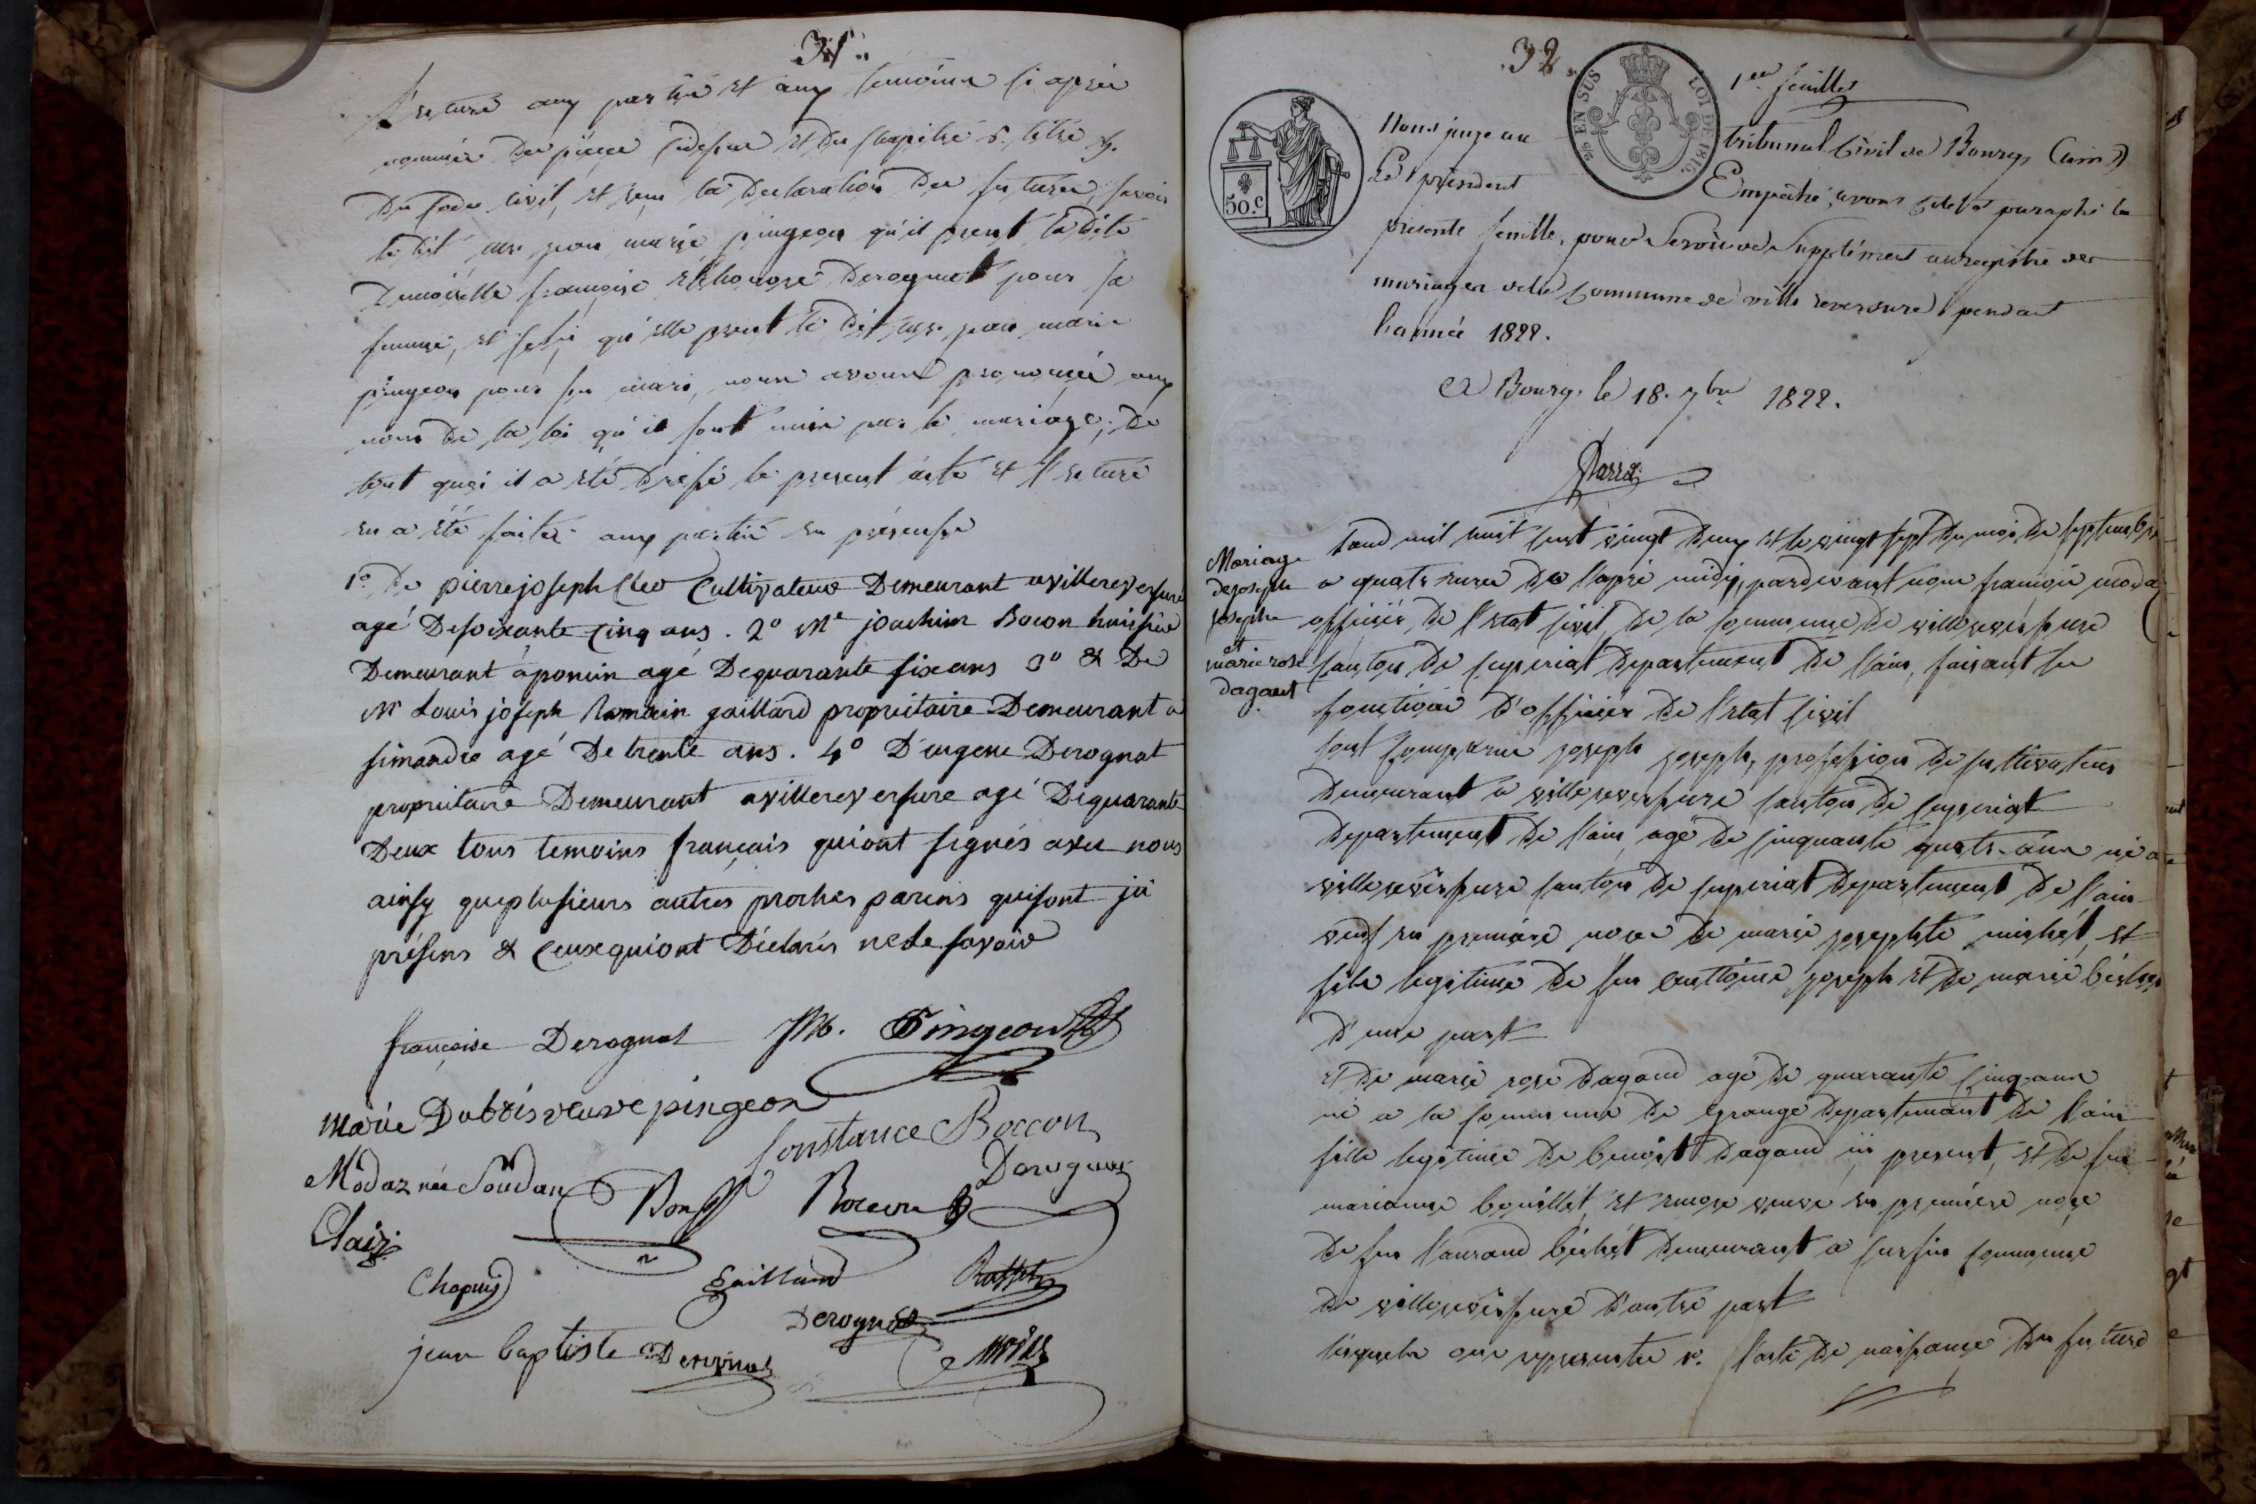 31.
lecture aux parties et aux temoins ci après
nommés des pièces cidessus et du chapitre 6. titre 5.
du code civil, et reçu la declaration des futures, savoir
le dit marie pingeon qu'il prent la dite
Demoiselle françoise Derognat pour sa
femme, et celle qu'elle prent le dit marie
pingeon pour son mari, nous avons prononcé aux
noms de la loi qu'il sont unis par le mariage; de
tout quoi il a été dressé le present acte et lecture
en a été faite aux parties en présence
1° De pierre joseph Cleo Cultivateur Demeurant avillereversure
agé De soixante Cinq ans. 2° Mr joachim Bocon huissier
Demeurant aponcin agé De quarante six ans 3° & De
Mr Louis joseph Romain gaillard proprietaire Demeurant a
simandre agé De trente ans. 4° D'eugene Derognat
proprietaire Demeurant avillereversure agé De quarante
Deux tous temoins français quiont signés avec nous
ainsy queplusieurs autres proches parens quisont ici
présens & Ceuxquiont Déclarés nele savoir
françoise Derognat M. Pingeon
marie Dubois veuve pingeon
Constance Boccon
Modaz née Soudan Bon Bocon Derognat
Claiz
Chapuis gaillard
Derognat
jean baptiste Derognat
32.
1er feuillet
50.C
EN SUS
LOI DE 1816.
Nous juge au tribunal Civil de Bourg (ain)
Le président Empêché, avons coté & paraphé la
présente feuille, pour servir de Supplément auregistre des
mariages dela Commune de ville reversure pendant
l'année 1822.
A Bourg. le 18. 7bre 1822.
Mariage
dejoseph
joseph
et
marie rose
dagand
l'and mil huit cent vingt deux et le vingt sept du mois de septembre
a quatre heures de l'après midy, pardevant nous françois modaz
officier de l'état civil de la commune de villereversure
canton de ceyseriat departement de l'ain, faisant les
fonctions d'officier de l'état civil
sont comparus joseph joseph, profession de cultivateur
demeurant a villereversure canton de ceyseriat
departement de l'ain, agé de cinquante quatre ans né a
villereversure canton de ceyseriat departement de l'ain
veuf en premiere noces de marie josephte michel, et
fils legitime de feu anttoine joseph et de marie
d'une part
et de marie rose dagand agé de quarante cinq ans
né a la commune de grange departement de l'ain
fille legitime de benoit dagand ici present, et de feue
marianne bouillet, et encore veuve en premiere noce
de feu laurand demeurant a commune
de villereversure d'autre part
lesquels ons represente 1°. l'acte de naissance du future